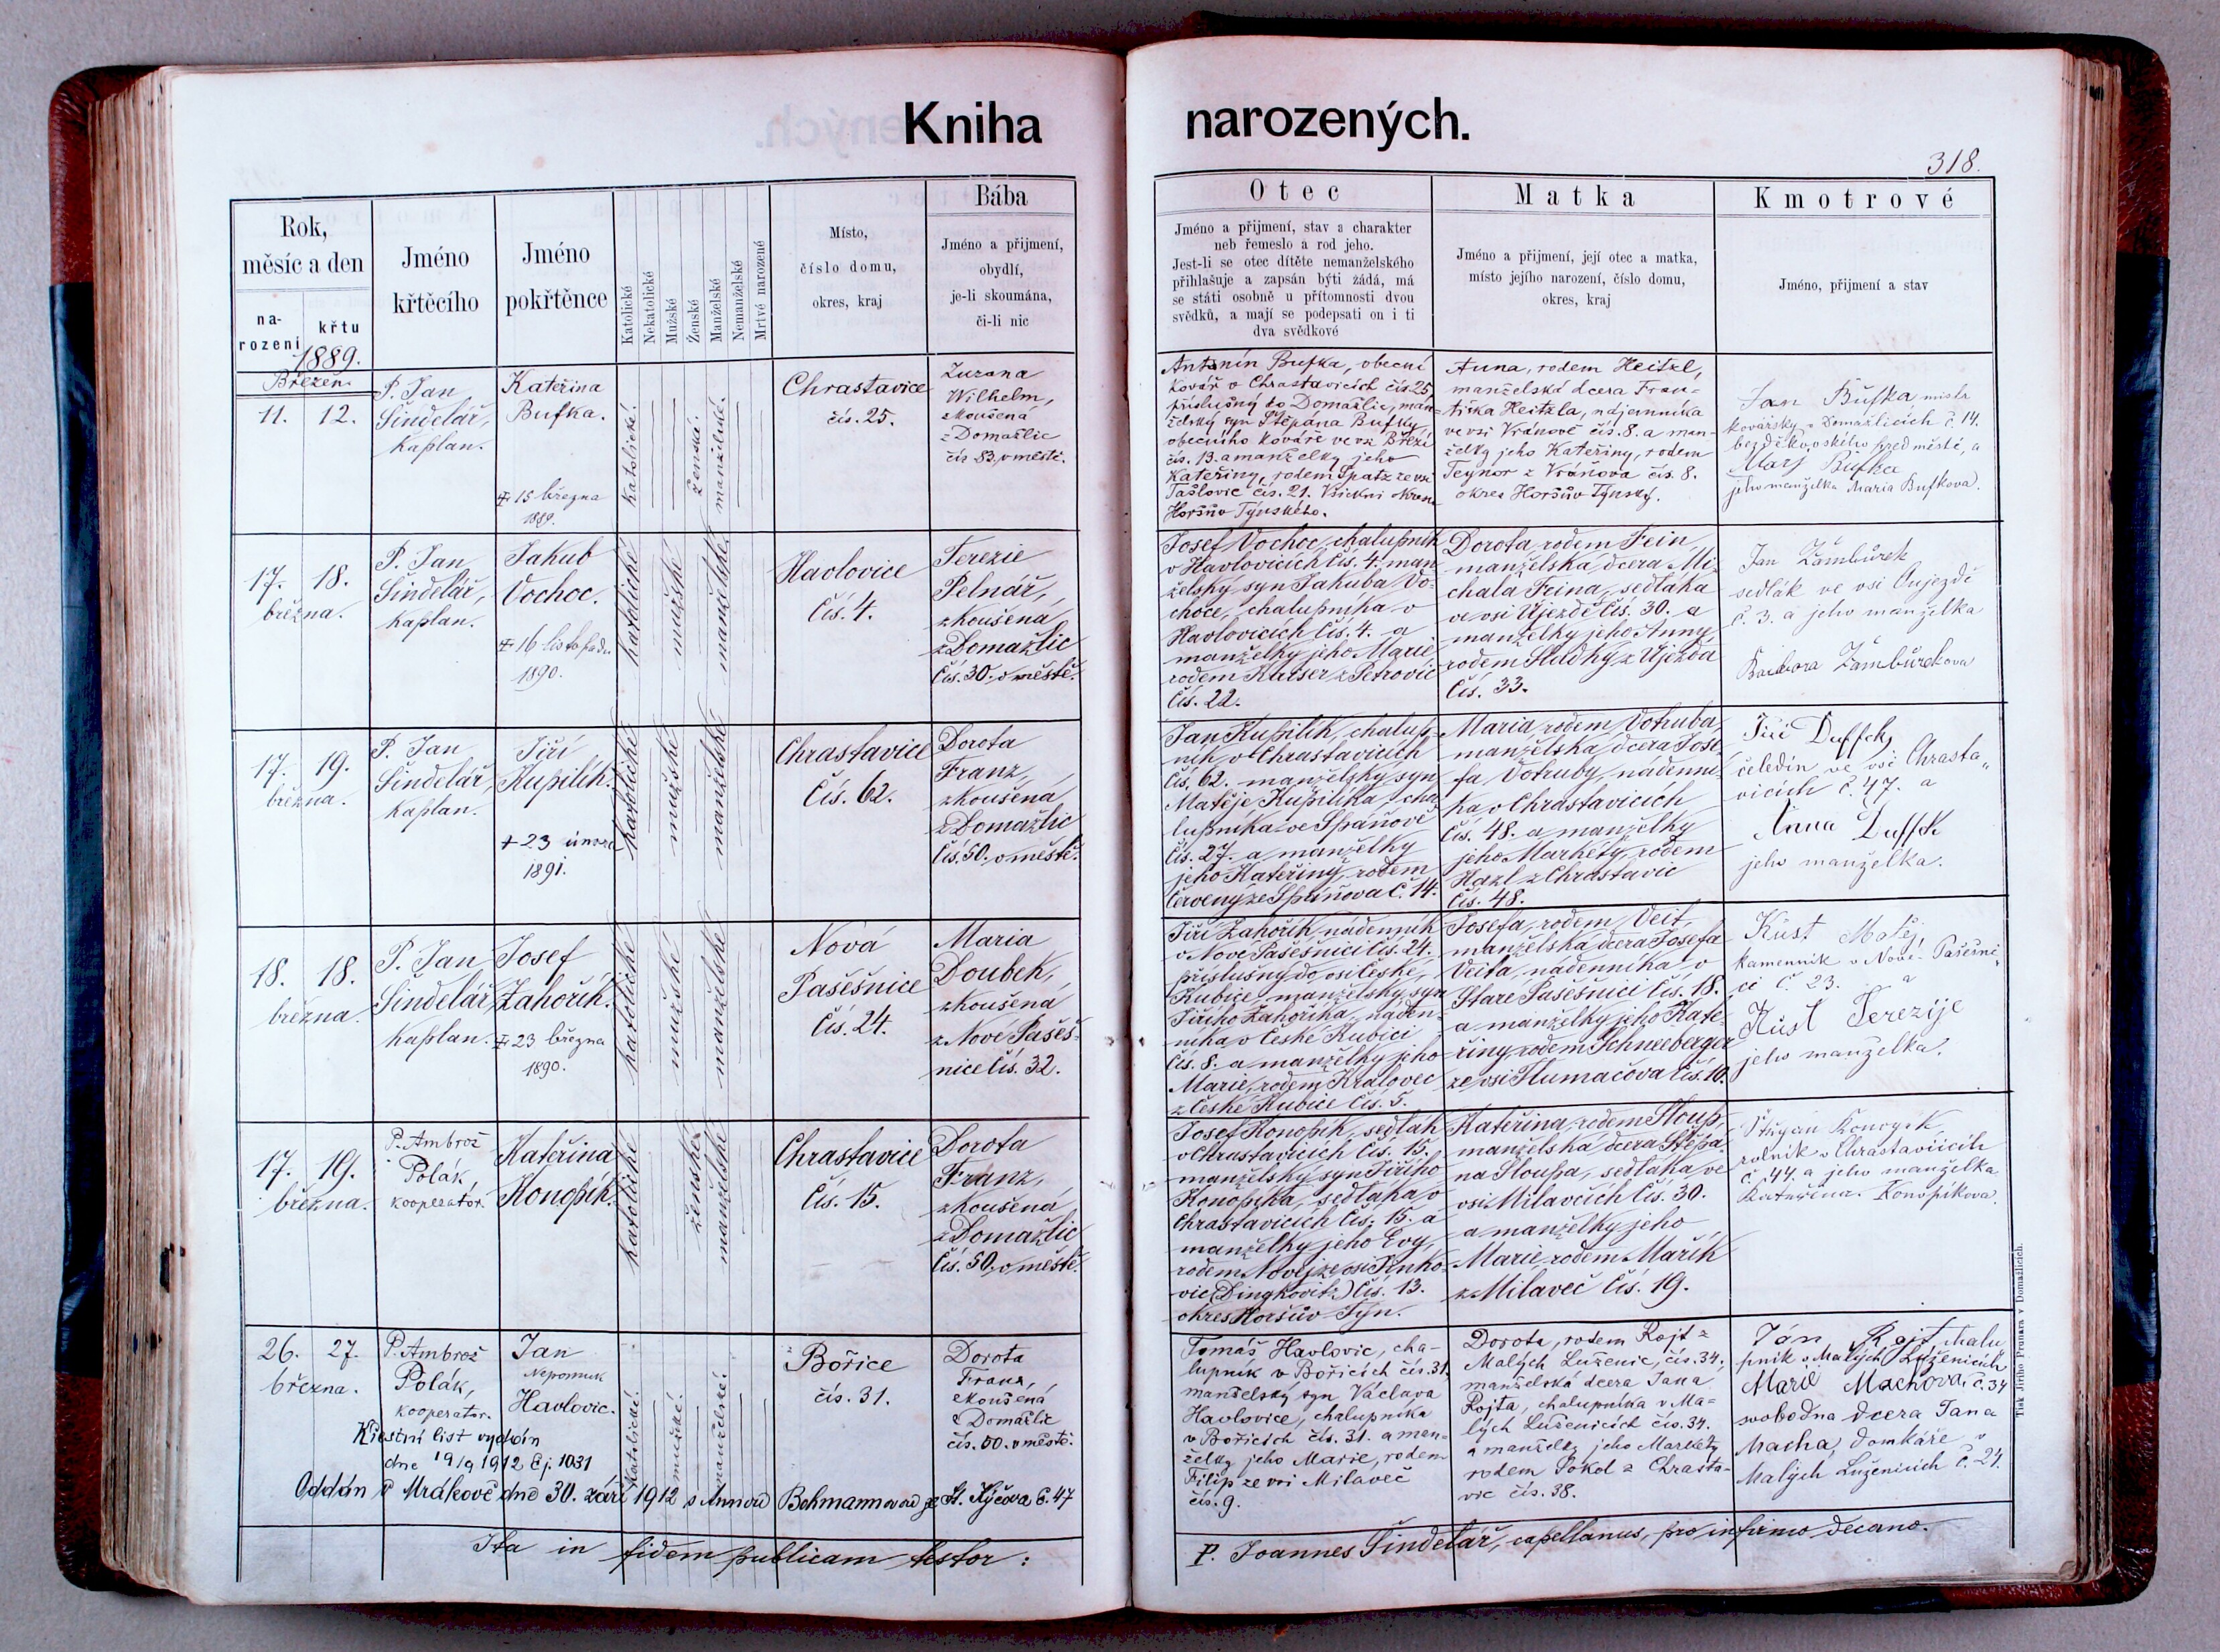 Kniha narozených.
318.
Rok,
měsíc a den
na-
rození
křtu
1889.
Jméno
křtěcího
Jméno
pokřtěnce
Katolické
Nekatolické
Mužské
Ženské
Manželské
Nemanželské
Mrtvě narozené
Místo,
číslo domu,
okres, kraj
Bába
Jméno a přijmení,
obydlí,
je-li zkoumána,
či-li nic
Otec
Jméno a přijmení, stav a charakter
neb řemeslo a rod jeho.
Jest-li se otec dítěte nemanželského
přihlašuje a zapsán býti žádá, má
se státi osobně u přítomnosti dvou
svědků, a mají se podepsati on i ti
dva svědkové
Matka
Jméno a přijmení, její otec a matka,
místo jejího narození, číslo domu,
okres, kraj
Kmotrové
Jméno, přijmení a stav
Březen.
11. 12.
P. Jan
Šindelář,
kaplan.
Kateřina
Bufka.
15 března
1889.
katolické.
ženské.
manželské.
Chrastavice
čís. 25.
Zuzana
Wilhelm,
zkoušená
z Domažlic
čís. 83. v městě.
Antonín Bufka, obecní
kovář v Chrastavicích čís. 25,
příslušný do Domažlic, man-
želský syn Štěpána Bufky,
obecního kováře ve vsi Březí
čís. 13. a manželky jeho
Kateřiny, rodem Spatz ze vsi
Tašlovic čís. 21. Všickni okresu
Horšův Týnského.
Anna, rodem Heitzl,
manželská dcera Fran-
tiška Heitzla, nájemníka
ve vsi Vránově čís. 8. a man-
želky jeho Kateřiny, rodem
Teynor z Vránova čís. 8.
okres Horšův Týnský.
Jan Bufka mistr
kovářský v Domažlicích č. 14.
bezděkovského předměstí, a
Mary Bufka
jeho manželka Maria Bufkova.
17. 18.
března.
P. Jan
Šindelář,
kaplan.
Jakub
Vochoc.
16 listopadu
1890.
katolické
mužské
manželské
Havlovice
čís. 4.
Terezie
Pelnář,
zkoušená
z Domažlic
čís. 30. v městě.
Josef Vochoc, chalupník
v Havlovicích čís. 4. man-
želský syn Jakuba Vo-
choce, chalupníka v
Havlovicích čís. 4. a
manželky jeho Marie,
rodem Kaiser z Petrovic
čís. 22.
Dorota, rodem Fein,
manželská dcera Mi-
chala Feina, sedláka
ve vsi Újezdě čís. 30. a
manželky jeho Anny,
rodem Sladký z Újezda
čís. 33.
Jan Žambůrek
sedlák ve vsi Oujezdě
č. 3. a jeho manželka
Barbora Žambůrkova
17. 19.
března.
P. Jan
Šindelář,
kaplan.
Jiří
Kupilík.
+ 23 února
1891.
katolické
mužské
manželské
Chrastavice
čís. 62.
Dorota
Franz,
zkoušená
z Domažlic
čís. 50. v městě.
Jan Kupilík, chalup-
ník v Chrastavicích
čís. 62. manželský syn
Matěje Kupilíka, cha-
lupníka ve Spáňově
čís. 27. a manželky
jeho Kateřiny, rodem
Červený ze Spáňova č. 14.
Maria, rodem Votruba,
manželská dcera Jose-
fa Votruby, nádenní-
ka v Chrastavicích
čís. 48. a manželky
jeho Markéty, rodem
Hazl z Chrastavic
čís. 48.
Jiří Duffek,
čeledín ve vsi Chrasta„
vicích č. 47. a
Anna Duffek
jeho manželka.
18. 18.
března.
P. Jan
Šindelář,
kaplan.
Josef
Zahořík.
23 března
1890.
katolické
mužské
manželské
Nová
Pašešnice
čís. 24.
Maria
Doubek,
zkoušená
z Nové Pašeš-
nice čís. 32.
Jiří Zahořík, nádenník
v Nové Pašešnici čís. 24.
příslušný do vsi České
Kubice, manželský syn
Jiřího Zahoříka, náden-
níka v České Kubici
čís. 8. a manželky jeho
Marie, rodem Královec
z České Kubice čís. 5.
Josefa, rodem Veit,
manželská dcera Josefa
Veita, nádenníka v
Staré Pašešnici čís. 18.
a manželky jeho Kate-
řiny, rodem Schneeberger
ze vsi Tlumačova čís. 10.
Kůst Matěj
kamenník v Nové Pašešni„
ci č. 23. a
Kůst Terezije
jeho manželka.
17. 19.
března.
P. Ambrož
Polák,
kooperator.
Kateřina
Konopík.
katolické
ženské
manželské
Chrastavice
čís. 15.
Dorota
Franz,
zkoušená
z Domažlic
čís. 50. v městě.
Josef Konopík, sedlák
v Chrastavicích čís. 15.
manželský syn Jiřího
Konopíka, sedláka v
Chrastavicích čís. 15. a
manželky jeho Evy,
rodem Nový ze vsi
vic (Dingkovitz) čís. 13.
okres Horšův Týn.
Kateřina, rodem Sloup,
manželská dcera Štěpá-
na Sloupa, sedláka ve
vsi Milavčích čís. 30.
a manželky jeho
Marie, rodem Mařík
z Milaveč čís. 19.
Konopík
rolník v Chrastavicích
č. 44. a jeho manželka
Kateřina Konopíkova.
26. 27.
března.
P. Ambrož
Polák,
kooperator.
Jan
Nepomuk
Havlovic.
katolické.
mužské.
manželské.
z Bořice
čís. 31.
Dorota
Franz,
zkoušená
z Domažlic
čís. 50. v městě.
Tomáš Havlovic, cha-
lupník v Bořicích čís. 31.
manželský syn Václava
Havlovice, chalupníka
v Bořicích čís. 31. a man-
želky jeho Marie, rodem
Filip ze vsi Milaveč
čís. 9.
Dorota, rodem Rojt z
Malých Luženic, čís. 34.,
manželská dcera Jana
Rojta, chalupníka v Ma-
lých Luženicích čís. 34.
a manželky jeho Markéty
rodem Sokol z Chrasta-
vic čís. 38.
Ján Rojt chalu
pník v Malých Luženicích
Marie Machova, č. 34
svobodna dcera Jana
Macha, domkáře v
Malých Luženicích č. 21.
Křestní list vydán
dne 19/9 1912 čj. 1031
Oddán v Mrákově dne 30. září 1912 s Annou Bohmannovou ze St. Kýčova č. 47
Ita in fidem publicam testor:
P. Joannes Šindelář, capellanus, pro infirmo decano.
Tisk Jiřího Prunara v Domažlicích.